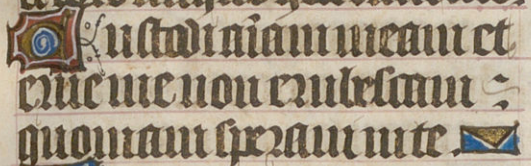 Custodi aīam meam et
erue me non erubescam :
quoniam speraui in te